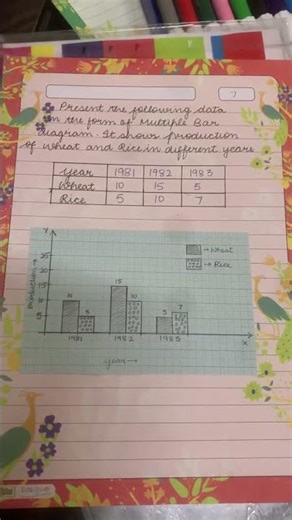 7
Present the following data
in the form of Multiple Bar
diagram. It shows production
of wheat and Rice, in different years
Year 1981 1982 1983
Wheat 10 15 5
Rice 5 10 7
Y
→ Wheat
→ Rice
Production →
25
20
15
10
5
10 5 15 10 5 7
1981 1982 1983
X
year →